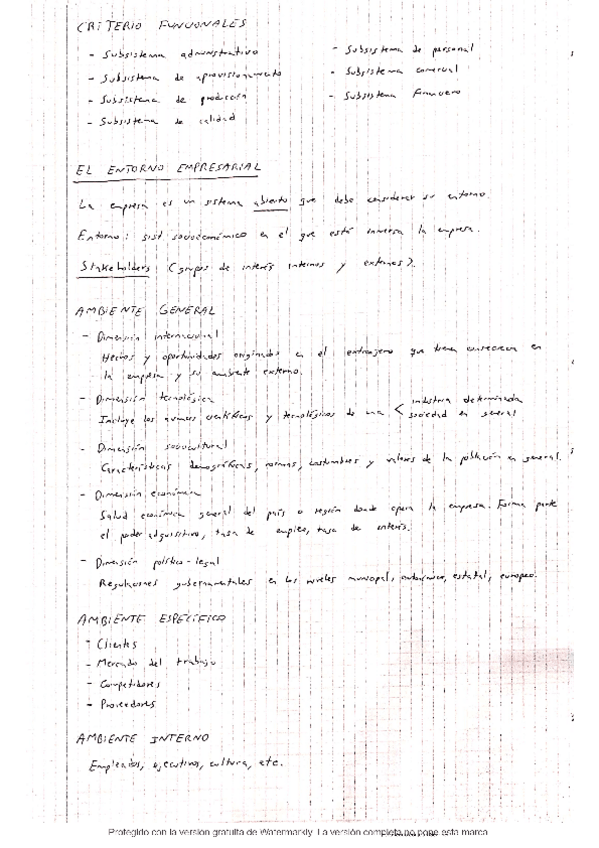 CRITERIO FUNCIONALES
- Subsistema administrativo
- Subsistema de personal
- Subsistema de aprovisionamiento
- Subsistema comercial
- Subsistema de producción
- Subsistema financiero
- Subsistema de calidad
EL ENTORNO EMPRESARIAL
La empresa es un sistema abierto que debe considerar su entorno.
Entorno: sist socioeconómico en el que está inmersa la empresa.
Stakeholders (grupos de interés internos y externos).
AMBIENTE GENERAL
- Dimensión internacional
Hechos y oportunidades originados en el extranjero que tienen en
la empresa y su ambiente externo.
- Dimensión tecnológica
Incluye los avances científicos y tecnológicos de una < industria determinada
sociedad en general
- Dimensión sociocultural
Características demográficas, normas, costumbres y valores de la población en general.
- Dimensión económica
Salud económica general del país o región donde opera la empresa. Forma parte
el poder adquisitivo, tasa de empleo, tasa de interés.
- Dimensión político-legal
Regulaciones gubernamentales en los niveles municipal, autonómico, estatal, europeo.
AMBIENTE ESPECÍFICO
- Clientes
- Mercado del trabajo
- Competidores
- Proveedores
AMBIENTE INTERNO
Empleados, ejecutivos, cultura, etc.
Protegido con la versión gratuita de Watermarkly. La versión completa no pone esta marca.